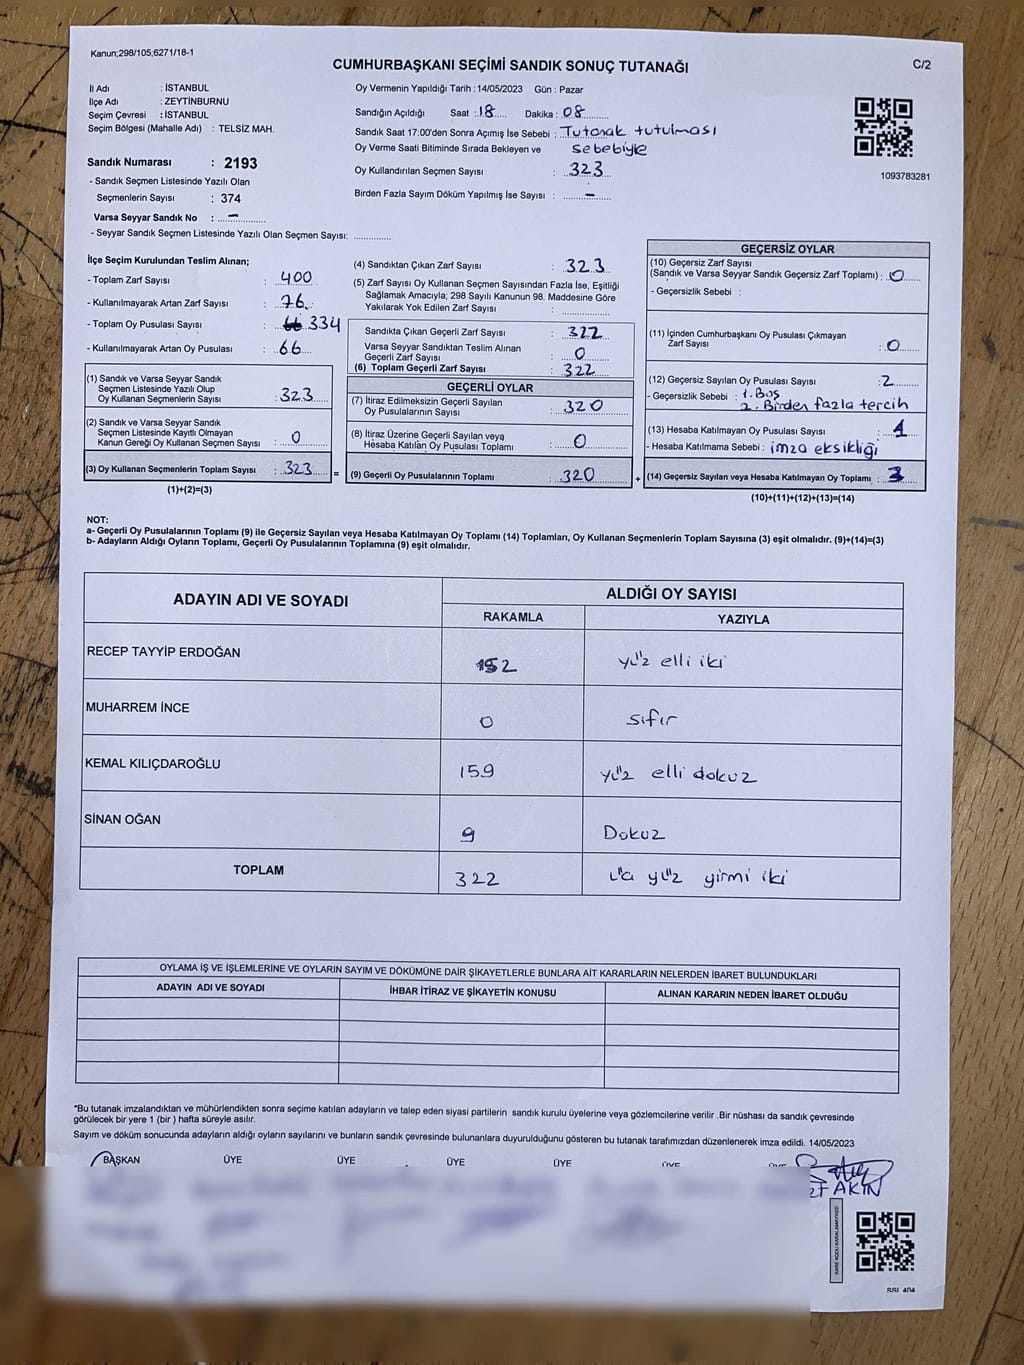 Kanun;298/105;6271/18-1
CUMHURBAŞKANI SEÇİMİ SANDIK SONUÇ TUTANAĞI
C/2
İl Adı : İSTANBUL
İlçe Adı : ZEYTİNBURNU
Seçim Çevresi : İSTANBUL
Seçim Bölgesi (Mahalle Adı) : TELSİZ MAH.
Sandık Numarası : 2193
- Sandık Seçmen Listesinde Yazılı Olan
Seçmenlerin Sayısı : 374
Varsa Seyyar Sandık No : –
- Seyyar Sandık Seçmen Listesinde Yazılı Olan Seçmen Sayısı: ..............
Oy Vermenin Yapıldığı Tarih : 14/05/2023 Gün : Pazar
Sandığın Açıldığı Saat : 18 Dakika : 08
Sandık Saat 17:00'den Sonra Açımış İse Sebebi : Tutanak tutulması
Oy Verme Saati Bitiminde Sırada Bekleyen ve sebebiyle
Oy Kullandırılan Seçmen Sayısı : 323
Birden Fazla Sayım Döküm Yapılmış İse Sayısı : –
1093783281
İlçe Seçim Kurulundan Teslim Alınan;
- Toplam Zarf Sayısı : 400
- Kullanılmayarak Artan Zarf Sayısı : 76
- Toplam Oy Pusulası Sayısı : 334
- Kullanılmayarak Artan Oy Pusulası : 66
(1) Sandık ve Varsa Seyyar Sandık
Seçmen Listesinde Yazılı Olup
Oy Kullanan Seçmenlerin Sayısı : 323
(2) Sandık ve Varsa Seyyar Sandık
Seçmen Listesinde Kayıtlı Olmayan
Kanun Gereği Oy Kullanan Seçmen Sayısı : 0
(3) Oy Kullanan Seçmenlerin Toplam Sayısı : 323 =
(1)+(2)=(3)
(4) Sandıktan Çıkan Zarf Sayısı : 323
(5) Zarf Sayısı Oy Kullanan Seçmen Sayısından Fazla İse, Eşitliği
Sağlamak Amacıyla; 298 Sayılı Kanunun 98. Maddesine Göre
Yakılarak Yok Edilen Zarf Sayısı : ..............
Sandıkta Çıkan Geçerli Zarf Sayısı : 322
Varsa Seyyar Sandıktan Teslim Alınan
Geçerli Zarf Sayısı : 0
(6) Toplam Geçerli Zarf Sayısı : 322
GEÇERLİ OYLAR
(7) İtiraz Edilmeksizin Geçerli Sayılan
Oy Pusulalarının Sayısı : 320
(8) İtiraz Üzerine Geçerli Sayılan veya
Hesaba Katılan Oy Pusulası Toplamı : 0
(9) Geçerli Oy Pusulalarının Toplamı : 320 +
GEÇERSİZ OYLAR
(10) Geçersiz Zarf Sayısı
(Sandık ve Varsa Seyyar Sandık Geçersiz Zarf Toplamı) : 0
- Geçersizlik Sebebi :
(11) İçinden Cumhurbaşkanı Oy Pusulası Çıkmayan
Zarf Sayısı : 0
(12) Geçersiz Sayılan Oy Pusulası Sayısı : 2
- Geçersizlik Sebebi : 1. Boş
2. Birden fazla tercih
(13) Hesaba Katılmayan Oy Pusulası Sayısı : 1
- Hesaba Katılmama Sebebi : imza eksikliği
(14) Geçersiz Sayılan veya Hesaba Katılmayan Oy Toplamı : 3
(10)+(11)+(12)+(13)=(14)
NOT:
a- Geçerli Oy Pusulalarının Toplamı (9) ile Geçersiz Sayılan veya Hesaba Katılmayan Oy Toplamı (14) Toplamları, Oy Kullanan Seçmenlerin Toplam Sayısına (3) eşit olmalıdır. (9)+(14)=(3)
b- Adayların Aldığı Oyların Toplamı, Geçerli Oy Pusulalarının Toplamına (9) eşit olmalıdır.
ADAYIN ADI VE SOYADI
ALDIĞI OY SAYISI
RAKAMLA YAZIYLA
RECEP TAYYİP ERDOĞAN 152 yüz elli iki
MUHARREM İNCE 0 sıfır
KEMAL KILIÇDAROĞLU 159 yüz elli dokuz
SİNAN OĞAN 9 Dokuz
TOPLAM 322 üç yüz yirmi iki
OYLAMA İŞ VE İŞLEMLERİNE VE OYLARIN SAYIM VE DÖKÜMÜNE DAİR ŞİKAYETLERLE BUNLARA AİT KARARLARIN NELERDEN İBARET BULUNDUKLARI
ADAYIN ADI VE SOYADI İHBAR İTİRAZ VE ŞİKAYETİN KONUSU ALINAN KARARIN NEDEN İBARET OLDUĞU
*Bu tutanak imzalandıktan ve mühürlendikten sonra seçime katılan adayların ve talep eden siyasi partilerin sandık kurulu üyelerine veya gözlemcilerine verilir .Bir nüshası da sandık çevresinde
görülecek bir yere 1 (bir ) hafta süreyle asılır.
Sayım ve döküm sonucunda adayların aldığı oyların sayılarını ve bunların sandık çevresinde bulunanlara duyurulduğunu gösteren bu tutanak tarafımızdan düzenlenerek imza edildi. 14/05/2023
BAŞKAN ÜYE ÜYE ÜYE ÜYE ÜYE
AKIN